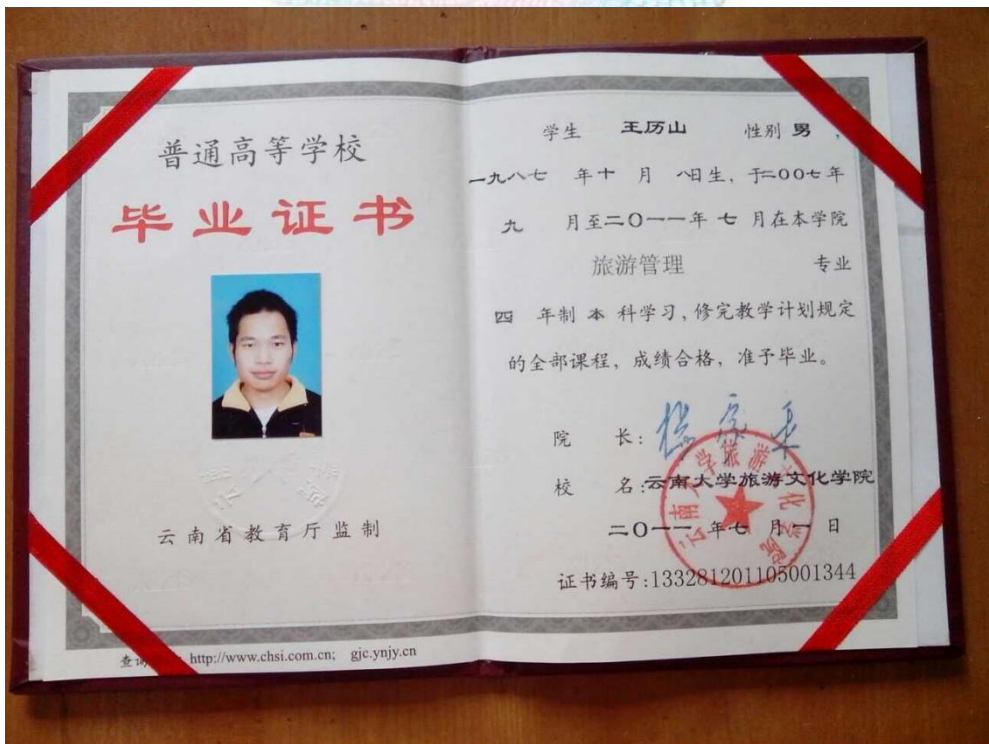 普通高等学校
毕业证书
云南省教育厅监制
查询 http://www.chsi.com.cn; gjc.ynjy.cn
学生 王历山 性别 男，
一九八七 年 十 月 八日生，于二00七年
九 月至二0一一年 七 月在本学院
旅游管理 专业
四 年制 本 科学习，修完教学计划规定
的全部课程，成绩合格，准予毕业。
院 长：
校 名：云南大学旅游文化学院
云南大学旅游文化学院
二0一一 年七 月一 日
证书编号：133281201105001344